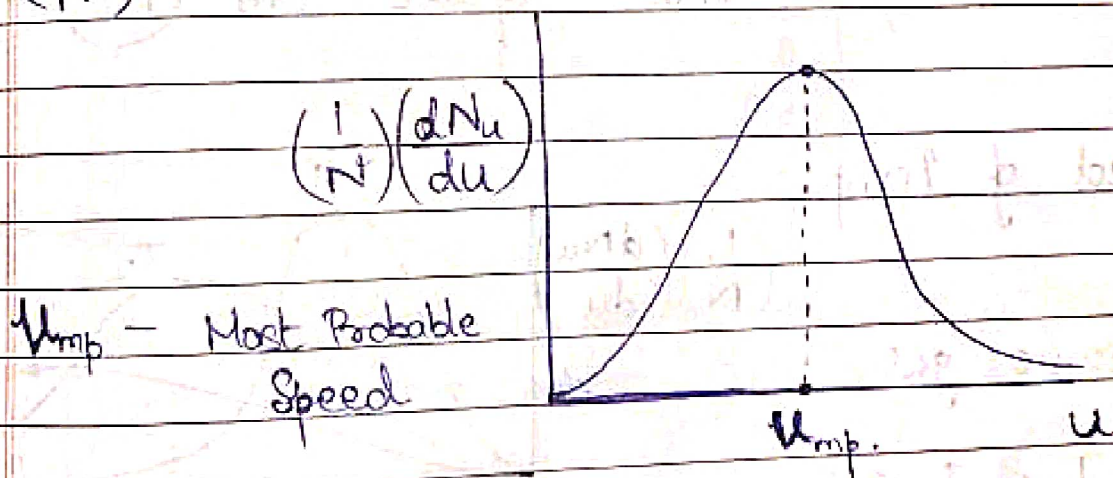 (1/N)(dNu/du)
Ump - Most Probable
Speed
Ump.
u